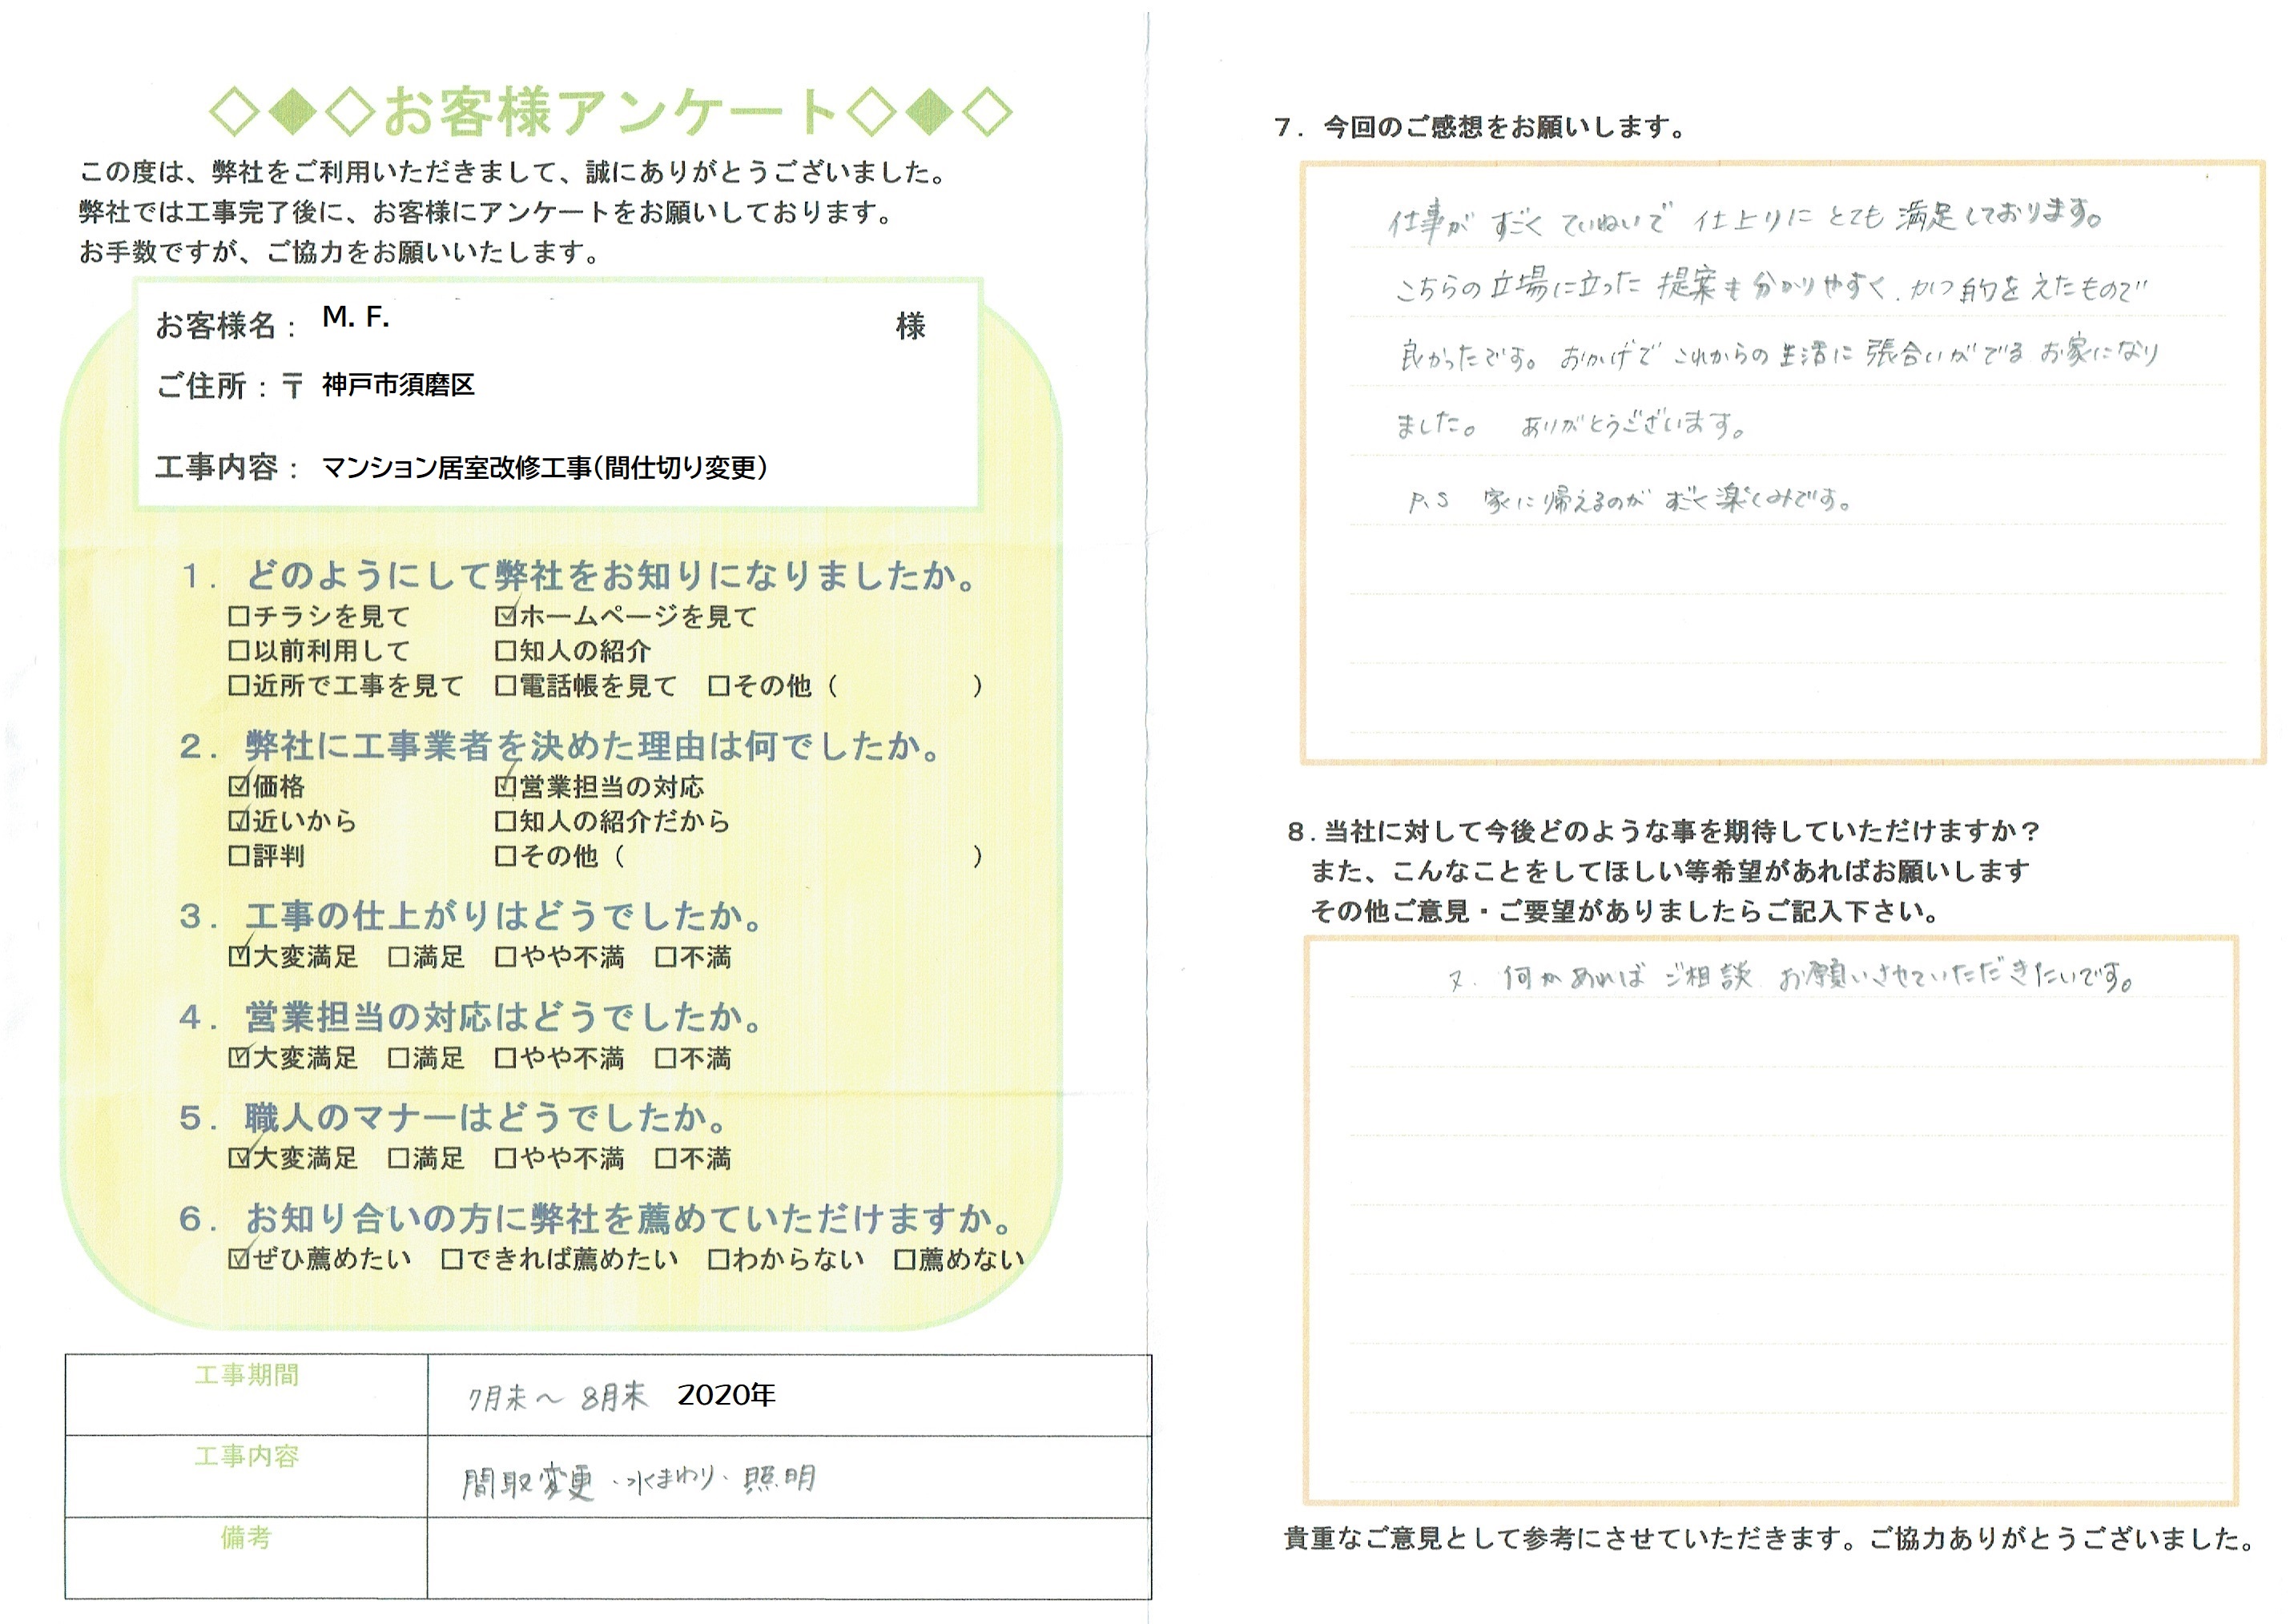 ◇◆◇お客様アンケート◇◆◇
この度は、弊社をご利用いただきまして、誠にありがとうございました。
弊社では工事完了後に、お客様にアンケートをお願いしております。
お手数ですが、ご協力をお願いいたします。
お客様名： M. F. 様
ご住所：〒 神戸市須磨区
工事内容： マンション居室改修工事（間仕切り変更）
１．どのようにして弊社をお知りになりましたか。
□チラシを見て ☑ホームページを見て
□以前利用して □知人の紹介
□近所で工事を見て □電話帳を見て □その他（ ）
２．弊社に工事業者を決めた理由は何でしたか。
☑価格 ☑営業担当の対応
☑近いから □知人の紹介だから
□評判 □その他（ ）
３．工事の仕上がりはどうでしたか。
☑大変満足 □満足 □やや不満 □不満
４．営業担当の対応はどうでしたか。
☑大変満足 □満足 □やや不満 □不満
５．職人のマナーはどうでしたか。
☑大変満足 □満足 □やや不満 □不満
６．お知り合いの方に弊社を薦めていただけますか。
☑ぜひ薦めたい □できれば薦めたい □わからない □薦めない
工事期間 7月末～8月末 2020年
工事内容 間取変更・水まわり・照明
備考
７．今回のご感想をお願いします。
仕事が すごく ていねいで 仕上りに とても 満足しております。
こちらの立場に立った 提案も分かりやすく、かつ的をえたもので
良かったです。 おかげで これからの生活に 張合いがでる お家になり
ました。 ありがとうございます。
P.S 家に帰えるのが すごく楽しみです。
８．当社に対して今後どのような事を期待していただけますか？
また、こんなことをしてほしい等希望があればお願いします
その他ご意見・ご要望がありましたらご記入下さい。
又、何かあれば ご相談 お願いさせていただきたいです。
貴重なご意見として参考にさせていただきます。ご協力ありがとうございました。